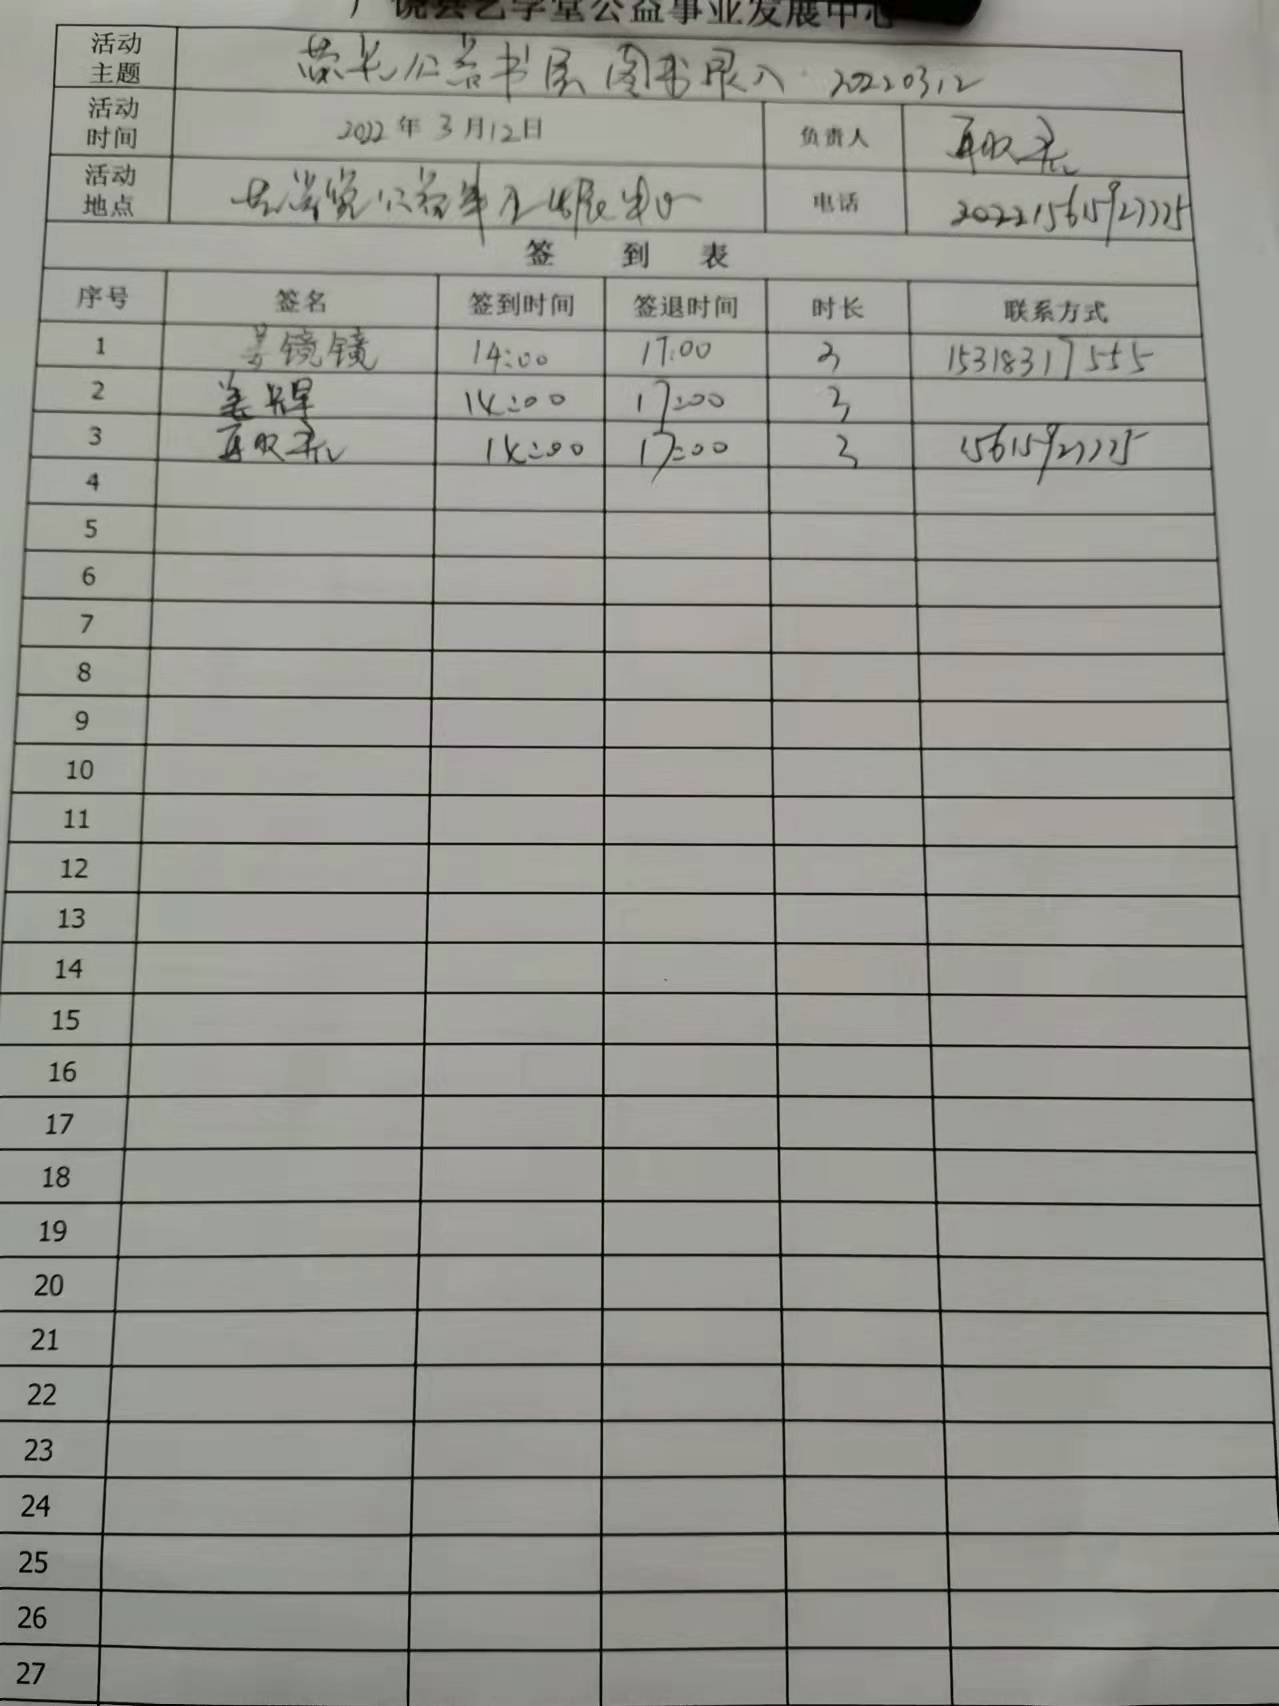 广饶县艺学堂公益事业发展中心
活动主题 公益书屋图书录入 20220312
活动时间 2022年3月12日 负责人
活动地点 艺学堂公益事业发展中心 电话
签 到 表
序号 签名 签到时间 签退时间 时长 联系方式
1 姜镜镜 14:00 17:00 3 15318317555
2 14:00 17:00 3
3 14:00 17:00 3
4
5
6
7
8
9
10
11
12
13
14
15
16
17
18
19
20
21
22
23
24
25
26
27